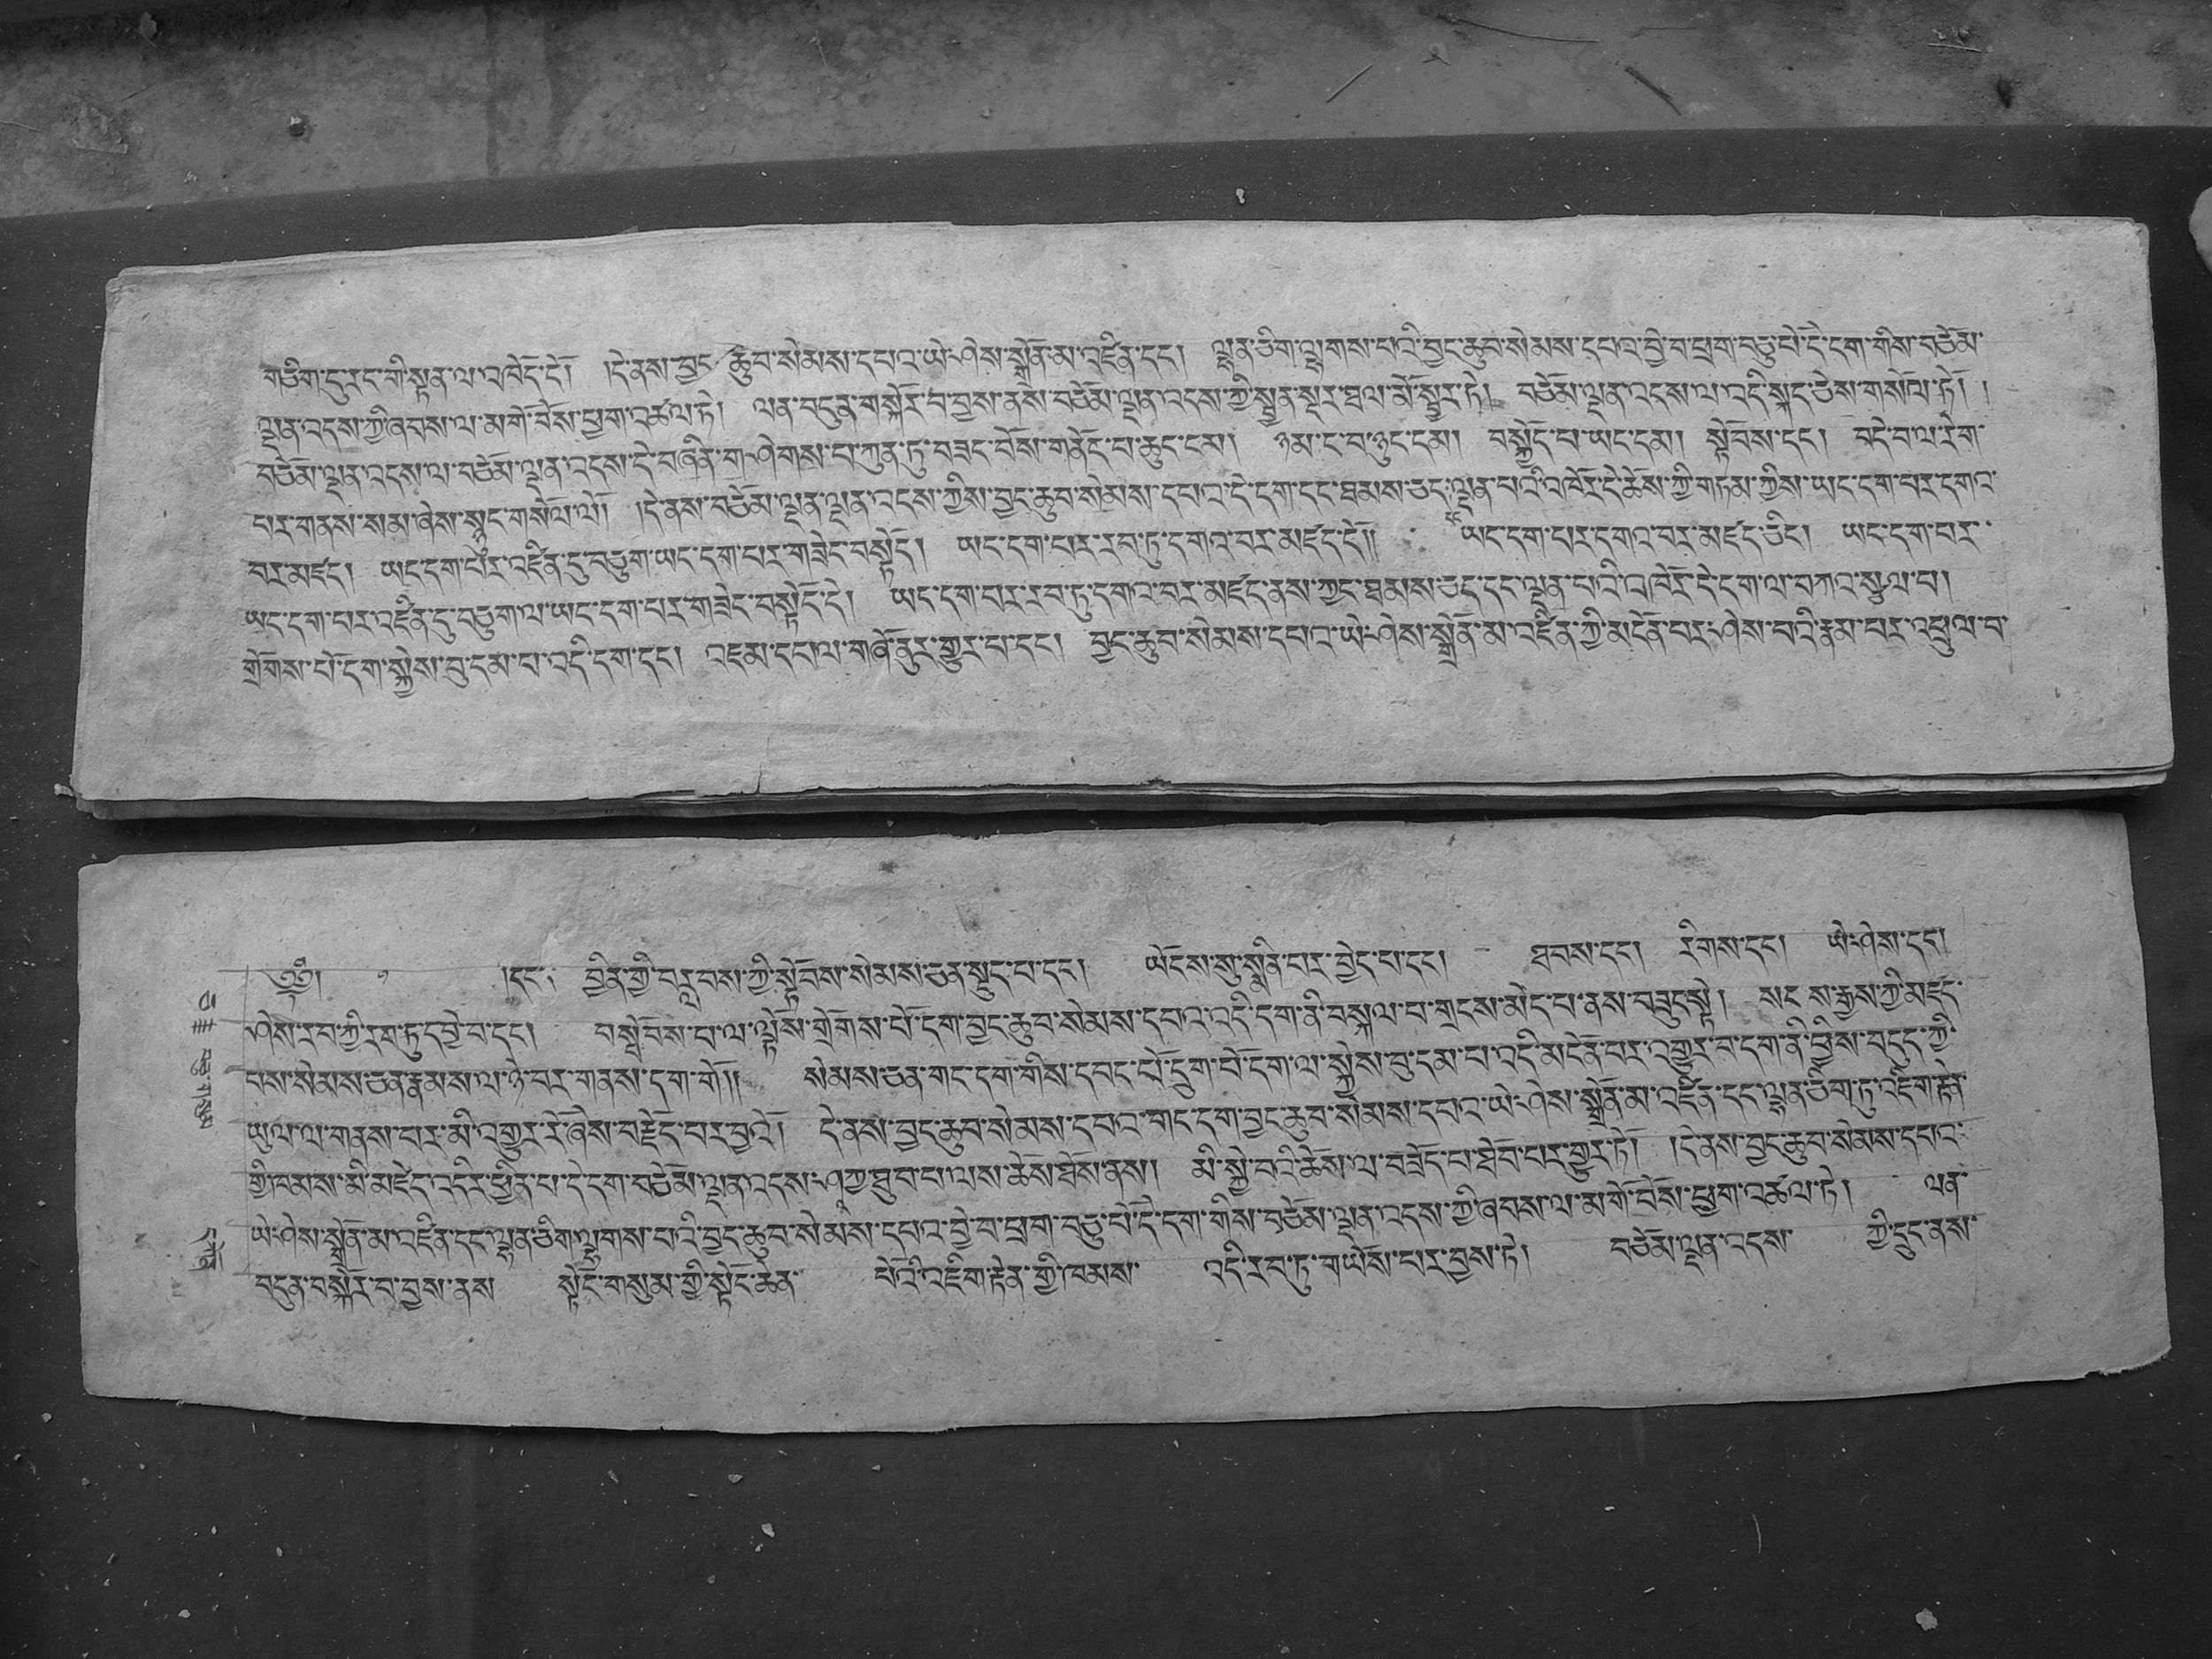 གཅིག་དུ་རང་གི་སྟན་ལ་འཁོད་དོ། །དེ་ནས་བྱང་ཆུབ་སེམས་དཔའ་ཡེ་ཤེས་སྒྲོན་མ་འཛིན་དང། ལྷན་ཅིག་ལྷགས་པའི་བྱང་ཆུབ་སེམས་དཔའ་བྱེ་བ་ཕྲག་བཅུ་པོ་དེ་དག་གིས་བཅོམ་
ལྡན་འདས་ཀྱི་ཞབས་ལ་མགོ་བོས་ཕྱག་འཚལ་ཏེ། ལན་བདུན་གསྐོར་བ་བྱས་ནས་བཅོམ་ལྡན་འདས་ཀྱི་སྤྱན་སྔར་ཐལ་མོ་སྦྱར་ཏེ། བཅོམ་ལྡན་འདས་ལ་འདི་སྐད་ཅེས་གསོལ་ཏོ། །
བཅོམ་ལྡན་འདས་ལ་བཅོམ་ལྡན་འདས་དེ་བཞིན་གཤེགས་པ་ཀུན་ཏུ་བཟང་པོས་གནོད་པ་ཆུང་ངམ། ཉམ་ང་བ་ཉུང་ངམ། བསྐྱོད་པ་ཡང་དམ། སྟོབས་དང། བདེ་བ་ལ་རེག་
པར་གནས་སམ་ཞེས་སྙུང་གསོལ་ལོ། །དེ་ནས་བཅོམ་ལྡན་ལྡན་འདས་ཀྱིས་བྱང་ཆུབ་སེམས་དཔའ་དེ་དག་དང་ཐམས་ཅད་ལྡན་པའི་འཁོར་དེ་ཆོས་ཀྱི་གཏམ་གྱིས་ཡང་དག་པར་དགའ་
བར་མཛད། ཡང་དག་པོར་འཛིན་དུ་བཅུག་ཡང་དག་པར་གཟེང་བསྟོད། ཡང་དག་པར་རབ་ཏུ་དགའ་བར་མཛད་དོ།། ཡང་དག་པར་དགའ་བར་མཛད་ཅིང། ཡང་དག་པར་
ཡང་དག་པར་འཛིན་དུ་བཅུག་ལ་ཡང་དག་པར་གཟེང་བསྟོད་དེ། ཡང་དག་པར་རབ་ཏུ་དགའ་བར་མཛད་ནས་ཀྱང་ཐམས་ཅད་དང་ལྡན་པའི་འཁོར་དེ་དག་ལ་བཀའ་སྩལ་པ།
གྲོགས་པོ་དག་སྐྱེས་བུ་དམ་པ་འདི་དག་དང། འཇམ་དཔལ་གཞོ་ནུར་གྱུར་པ་དང། བྱང་ཆུབ་སེམས་དཔའ་ཡེ་ཤེས་སྒྲོན་མ་འཛིན་ཀྱི་མངོན་པར་ཤེས་པའི་རྣམ་པར་འཕྲུལ་བ་
།དང་ བྱིན་གྱི་བརླབས་ཀྱི་སྟོབས་སེམས་ཅན་སྡུད་པ་དང། ཡོངས་སུ་སྨིན་པར་བྱེད་པ་དང། ཐབས་དང། རིགས་དང། ཡེ་ཤེས་དང།
ཤེས་རབ་ཀྱི་རག་ཏུ་དབྱེ་བ་དང། བསྤོབས་པ་ལ་ལྟོས་གྲོགས་པོ་དག་བྱང་ཆུབ་སེམས་དཔའ་འདི་དག་ནི་བསྐལ་པ་གྲངས་མེད་པ་ནས་བཟུང་སྟེ། སང་ས་རྒྱས་ཀྱི་མཛད་
པས་སེམས་ཅན་རྣམས་ལ་ཉེ་བར་གནས་དག་གོ།། སེམས་ཅན་གང་དག་གིས་དབང་པོ་དྲུག་པོ་དག་ལ་སྐྱེས་བུ་དམ་པ་འདི་མངོན་བར་འགྱུར་བ་དག་ནི་ཕྱིས་བདུད་ཀྱི་
ཡུལ་ལ་གནས་པར་མི་འགྱུར་རོ་ཞེས་བརྗོད་པར་བྱའོ། དེ་ནས་བྱང་ཆུབ་སེམས་དཔའ་གང་དག་བྱང་ཆུབ་སེམས་དཔའ་ཡེ་ཤེས་སྒྲོན་མ་འཛིན་དང་ལྷན་ཅིག་ཏུ་འཇིག་རྟེན་
གྱི་ཁམས་མི་མཇེད་འདིར་ཕྱིན་པ་དེ་དག་བཅོམ་ལྡན་འདས་ཤཱཀྱ་ཐུབ་པ་ལས་ཆོས་ཐོས་ནས། མི་སྐྱེ་བའི་ཆོས་ལ་བཟོད་པ་ཐོབ་པར་གྱུར་ཏོ། །དེ་ནས་བྱང་ཆུབ་སེམས་དཔའ་
ཡེ་ཤེས་སྒྲོན་མ་འཛིན་དང་ལྷན་ཅིག་ལྷགས་པའི་བྱང་ཆུབ་སེམས་དཔའ་བྱེ་བ་ཕྲག་བཅུ་པོ་དེ་དག་གིས་བཅོམ་ལྡན་འདས་ཀྱི་ཞབས་ལ་མགོ་བོས་ཕྱག་འཚལ་ཏེ། ལན་
བདུན་བསྐོར་བ་བྱས་ནས སྟོང་གསུམ་གྱི་སྟོང་ཆེན་ པོའི་འཇིག་རྟེན་གྱི་ཁམས་ འདི་རབ་ཏུ་གཡོས་པར་བྱས་ཏེ། བཅོམ་ལྡན་འདས་ ཀྱི་དྲུང་ནས་